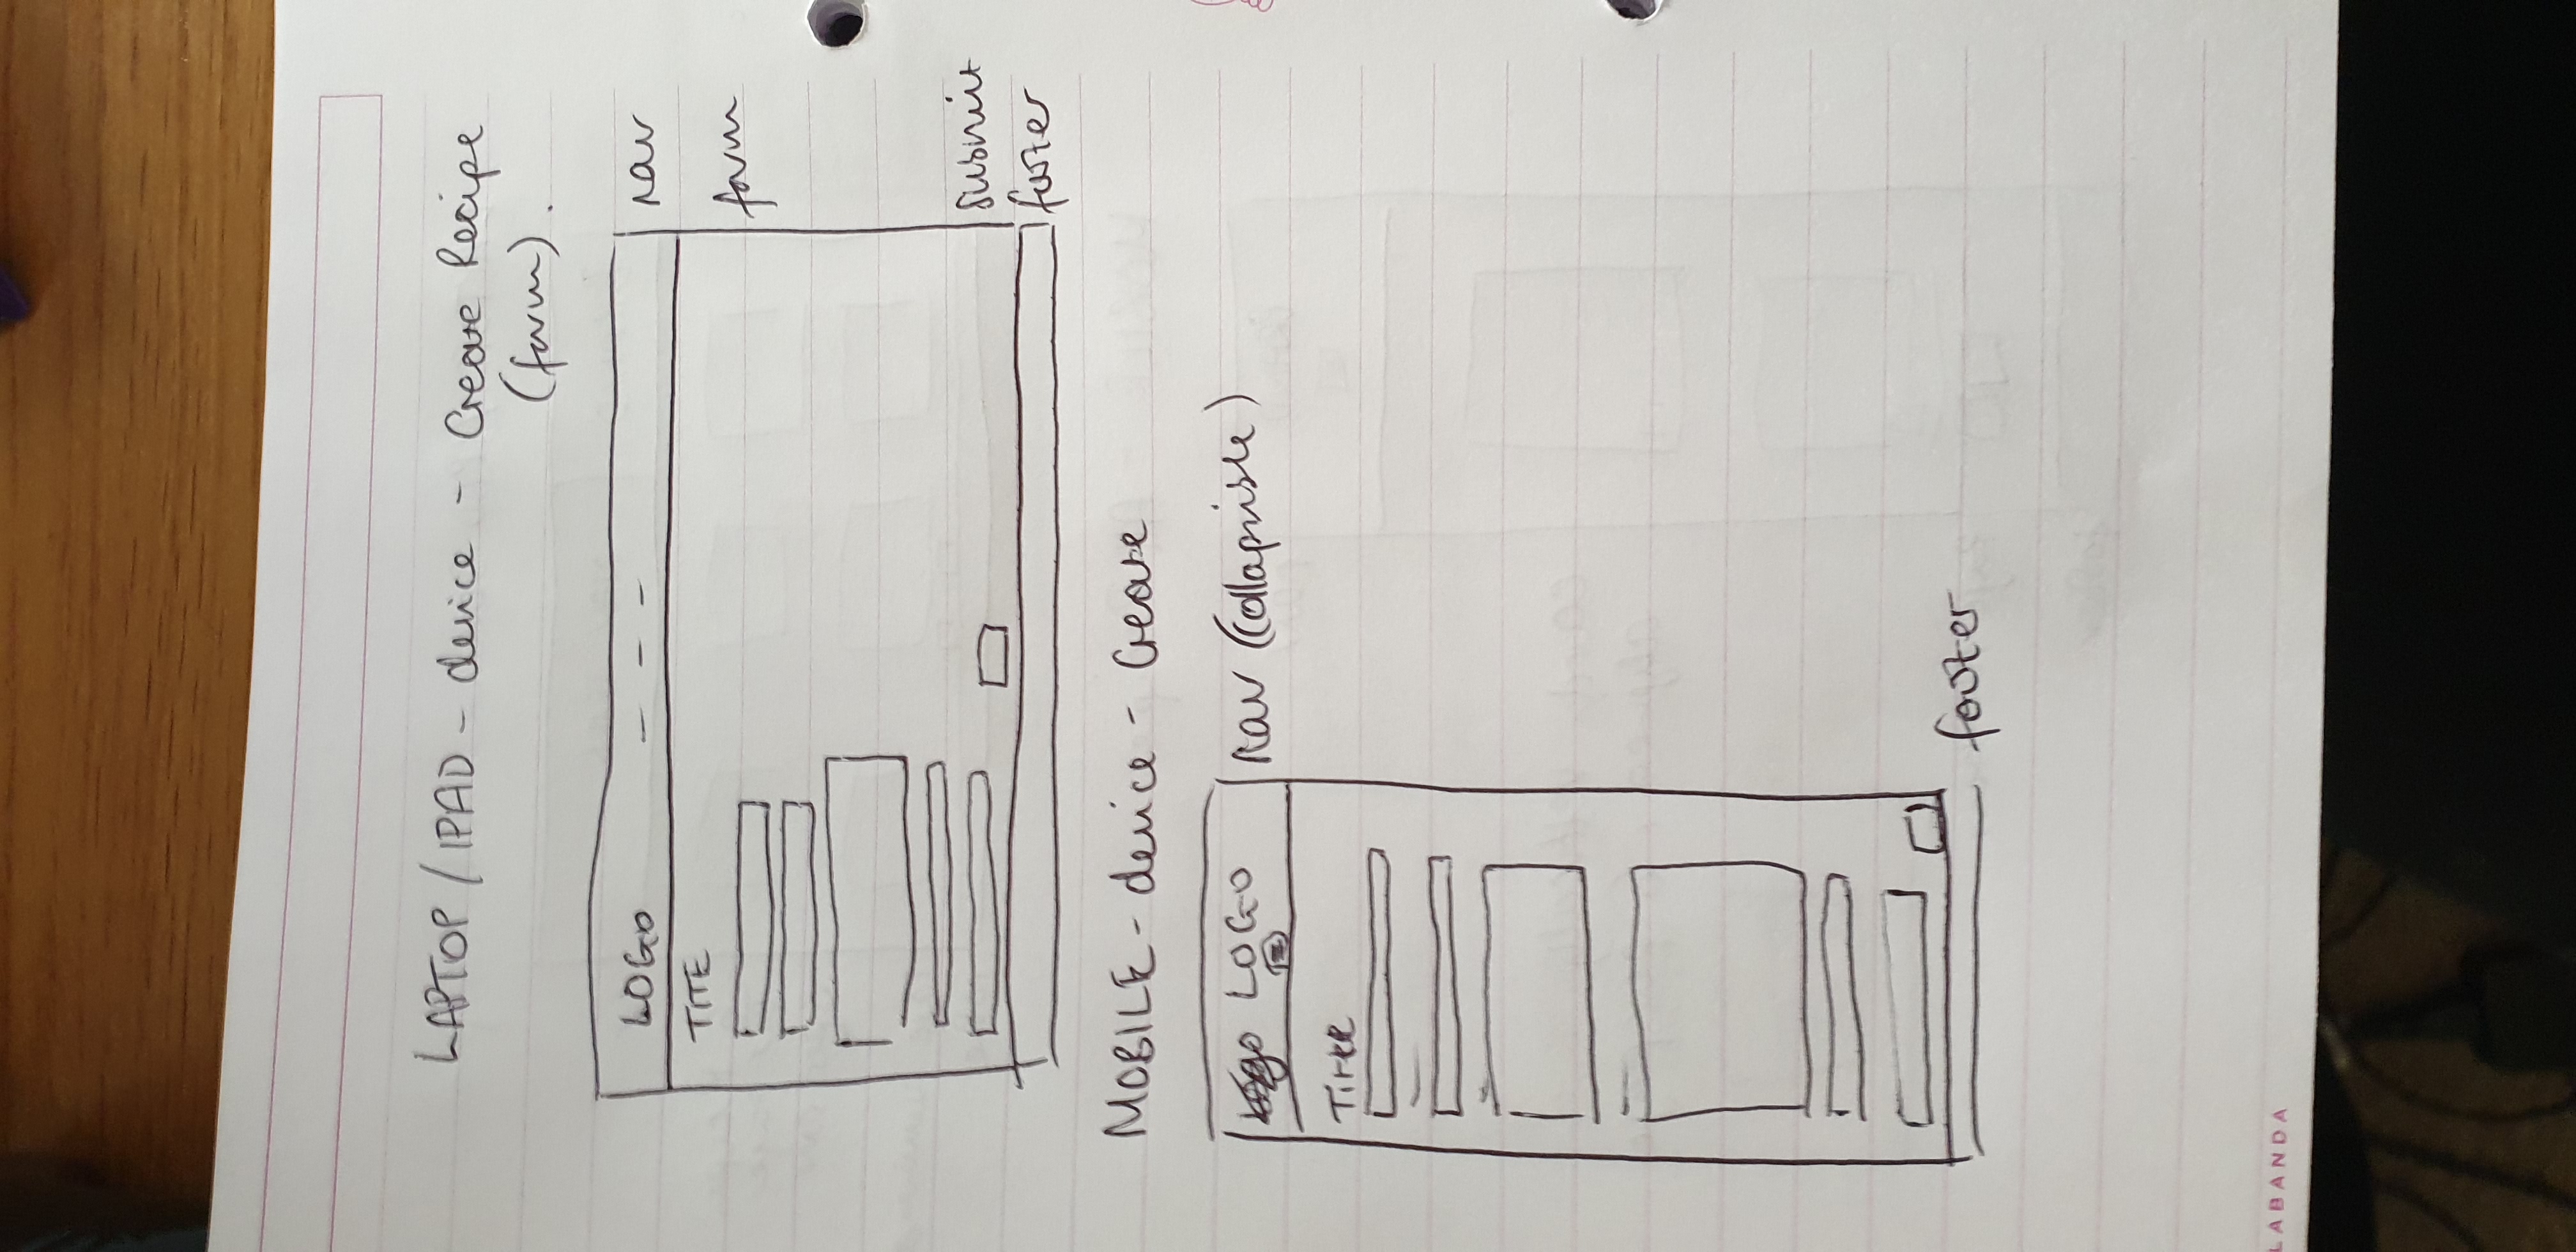 LAPTOP / IPAD - device - Create Recipe
(form).
LOGO - - - nav
TITE
form
submit
footer
MOBILE - device - Create
Logo LOGO nav (collapsible)
Title
footer
LABANDA